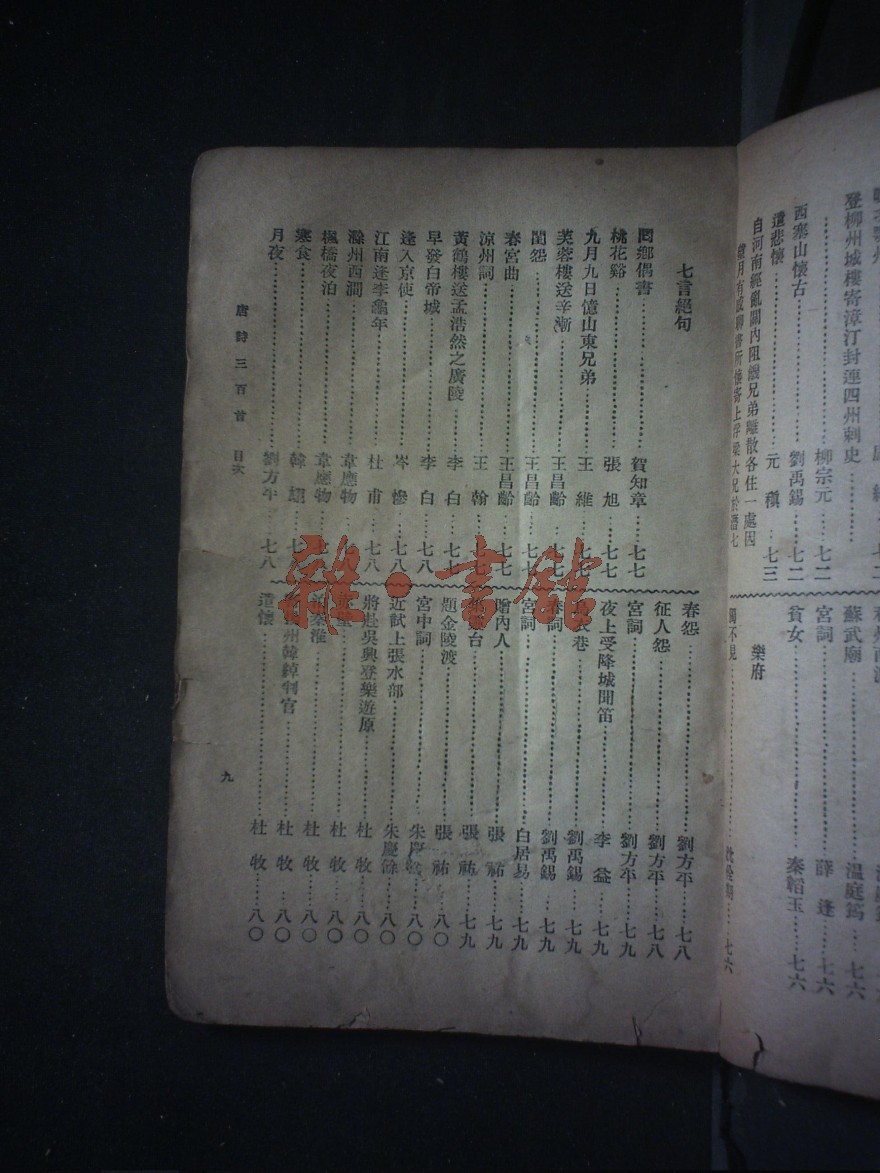 登柳州城樓寄漳汀封連四州刺史
柳宗元 七二
西塞山懷古 劉禹錫 七二
遣悲懷 元稹 七三
自河南經亂關內阻饑兄弟離散各住一處因
蘇武廟 溫庭筠 七六
宮詞 薛逢 七六
貧女 秦韜玉 七六
樂府
獨不見 七六
七言絕句
回鄉偶書 賀知章 七七
桃花谿 張旭 七七
九月九日憶山東兄弟 王維 七七
芙蓉樓送辛漸 王昌齡 七七
閨怨 王昌齡 七七
春宮曲 王昌齡 七七
涼州詞 王翰 七
黃鶴樓送孟浩然之廣陵 李白 七七
早發白帝城 李白 七八
逢入京使 岑參 七八
江南逢李龜年 杜甫 七八
滁州西澗 韋應物 七
楓橋夜泊 韋應物 七
寒食 韓翃 七
月夜 劉方平 七八
春怨 劉方平 七八
征人怨 劉方平 七八
宮詞 劉方平 七九
夜上受降城聞笛 李益 七九
衣巷 劉禹錫 七九
春詞 劉禹錫 七九
宮詞 白居易 七九
贈內人 張祜 七九
臺 張祜 七九
題金陵渡 張祜 八〇
宮中詞 朱慶餘 八〇
近試上張水部 朱慶餘 八〇
將赴吳興登樂遊原 杜牧 八〇
杜牧 八〇
秦淮 杜牧 八〇
州韓綽判官 杜牧 八〇
遣懷 杜牧 八〇
唐詩三百首 目次
九
雜·書館